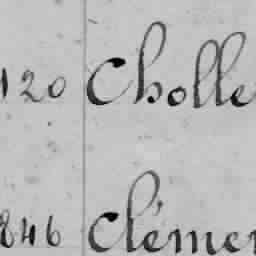 120 Cholle
846 Clémen